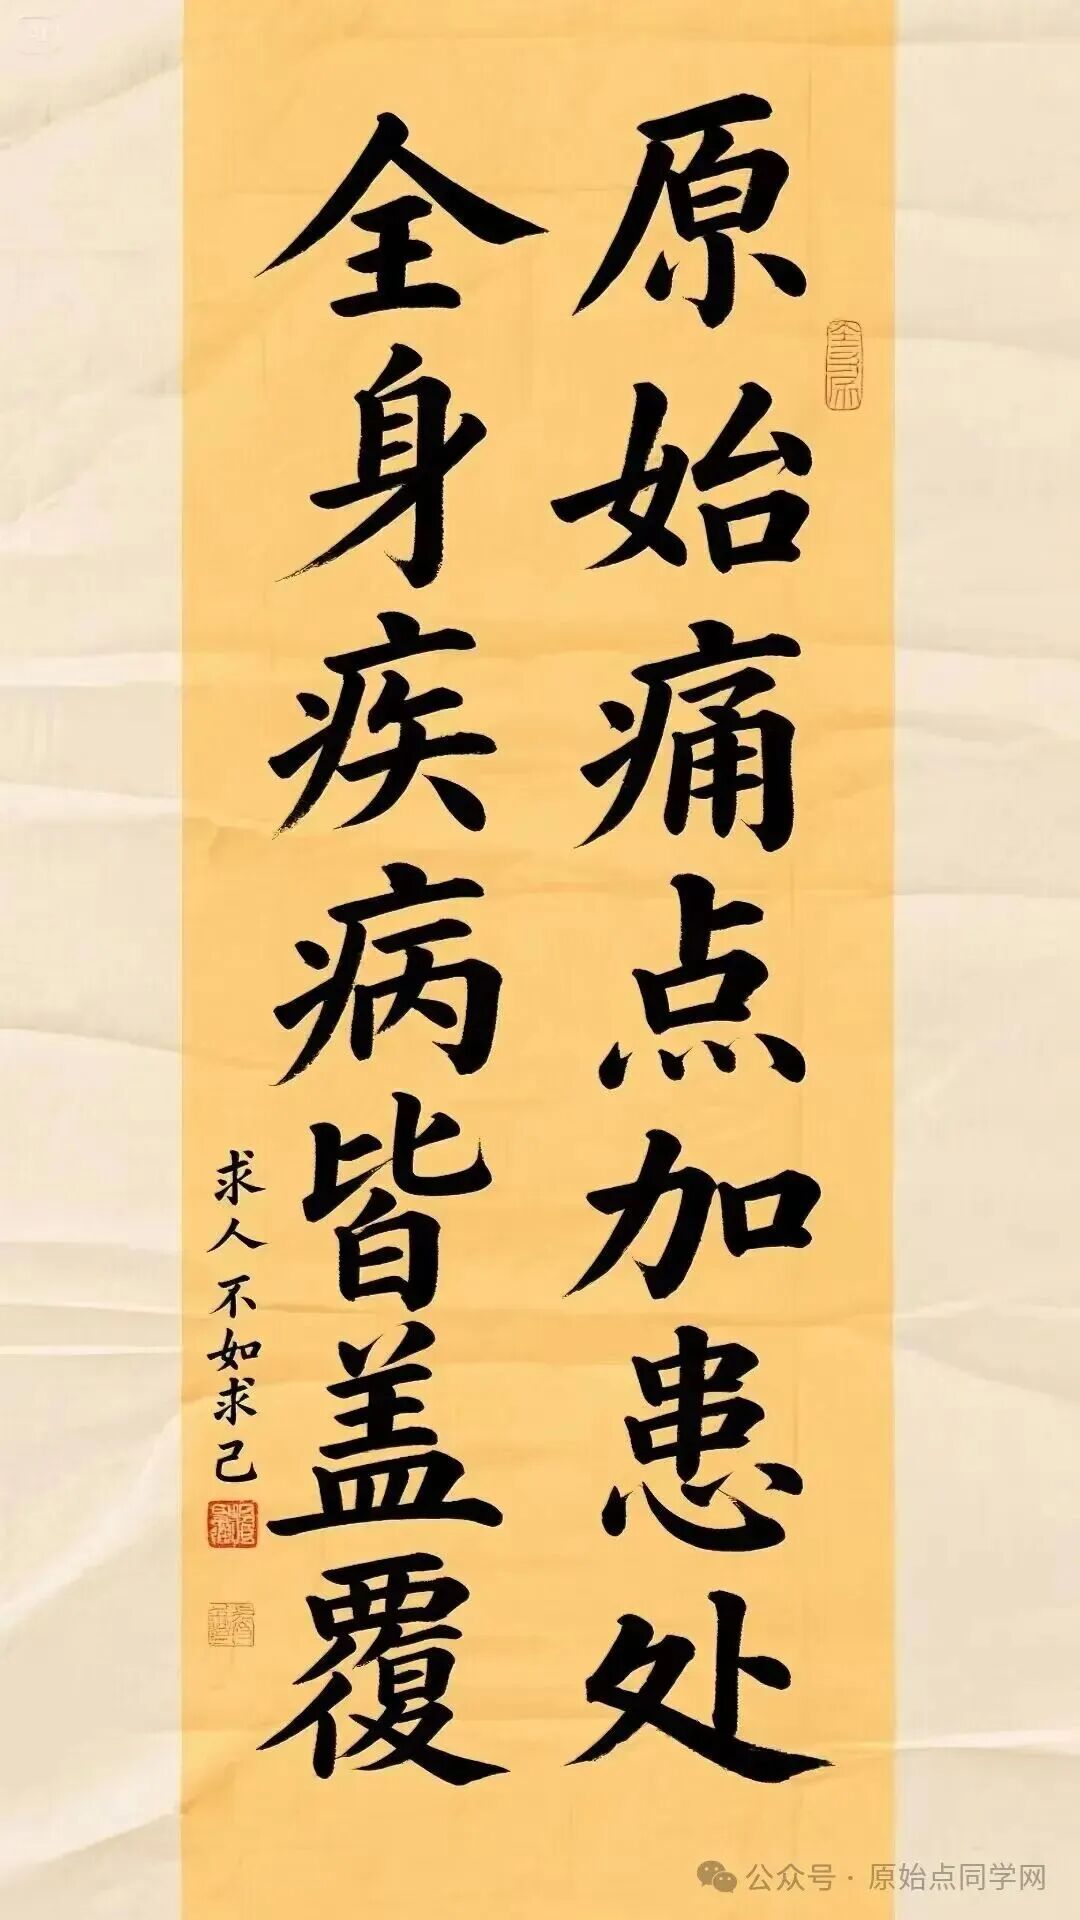 原始痛点加患处
全身疾病皆盖覆
求人不如求己
公众号·原始点同学网